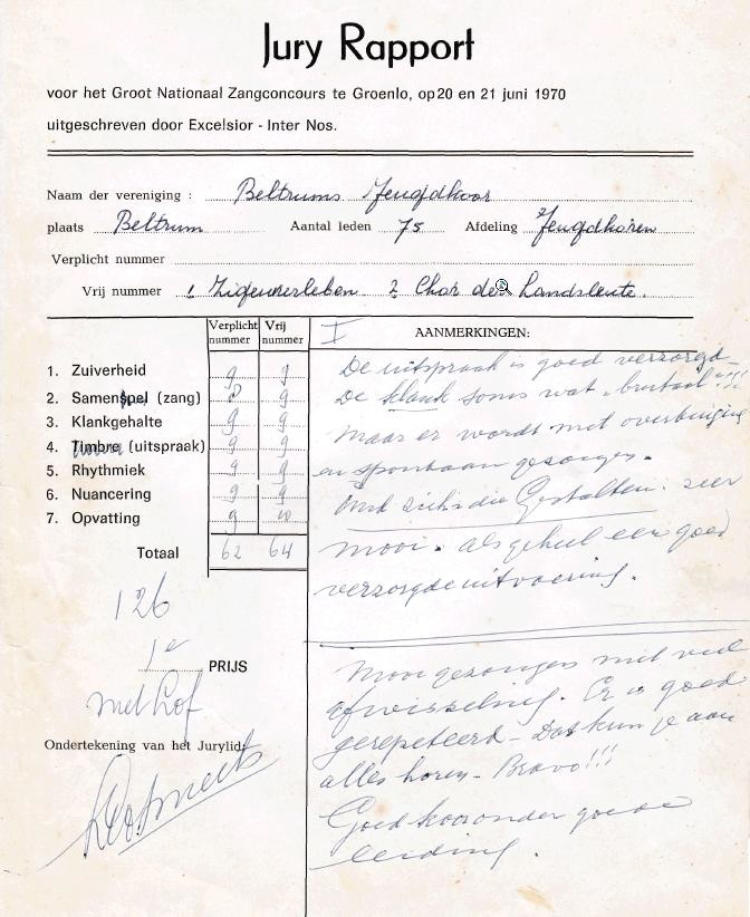 Jury Rapport
voor het Groot Nationaal Zangconcours te Groenlo, op 20 en 21 juni 1970
uitgeschreven door Excelsior - Inter Nos.
Naam der vereniging : Beltrums Jeugdkoor
plaats Beltrum Aantal leden 75 Afdeling Jeugdkoren
Verplicht nummer
Vrij nummer 1 Zigeunerleben 2 Chor der Landsleute.
Verplicht nummer Vrij nummer I AANMERKINGEN:
1. Zuiverheid 9 9
2. Samenspel (zang) 8 9
3. Klankgehalte 9 9
4. Timbre (uitspraak) 9 9
5. Rhythmiek 9 9
6. Nuancering 9 9
7. Opvatting 9 10
Totaal 62 64
De uitspraak is goed verzorgd -
De klank soms wat brutaal !!!
Maar er wordt met overtuiging
en spontaan gezongen.
Gestalten: zeer
mooi. als geheel een goed
verzorgde uitvoering.
126
1e PRIJS
met lof
Ondertekening van het Jurylid:
Mooi gezongen met veel
afwisseling. Er is goed
gerepeteerd - Dat kun je aan
alles horen - Bravo!!!
Goed koor onder goede
leiding.